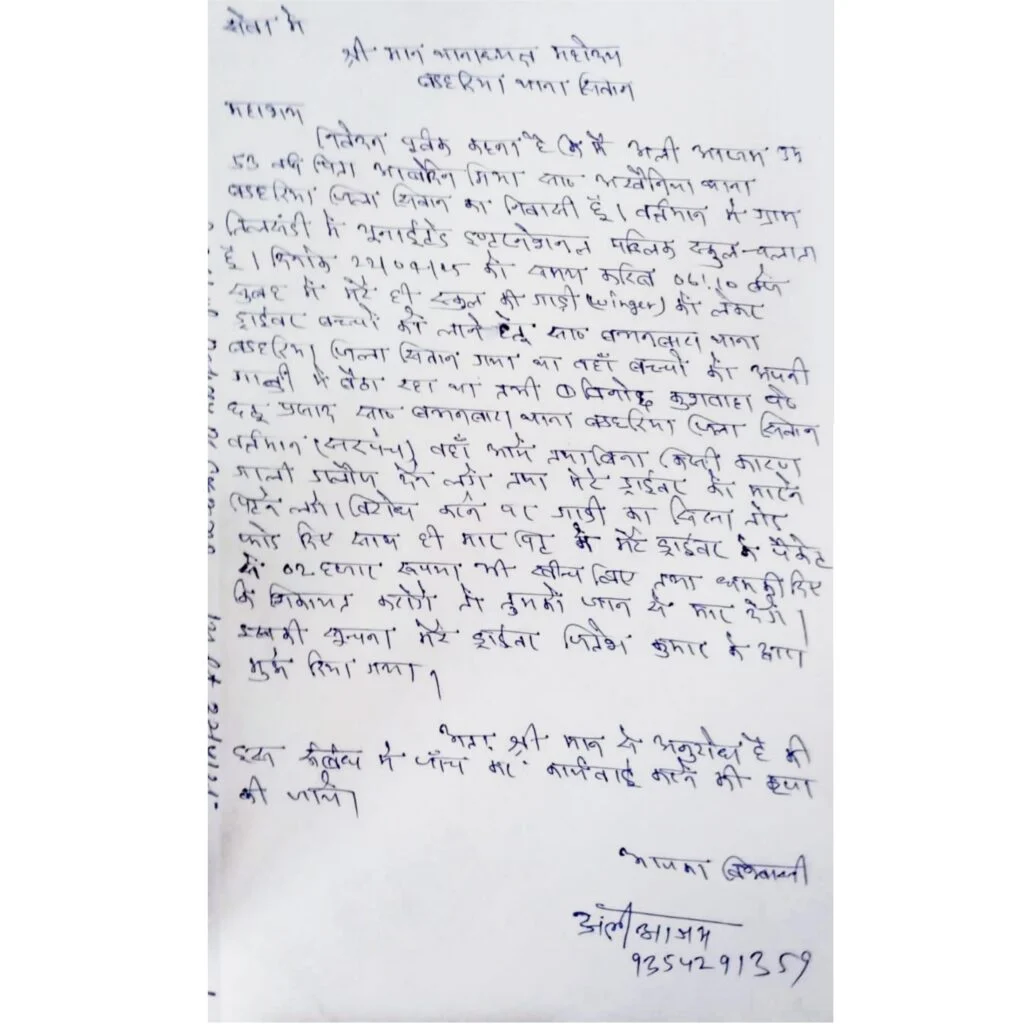 सेवा में
श्री मान थानाध्यक्ष महोदय
बड़हरिया थाना सिवान
महाशय
निवेदन पूर्वक कहना है कि मैं अली आजम उम्र
53 वर्ष पिता मियां साo थाना
बड़हरिया जिला सिवान का निवासी हूँ। वर्तमान में ग्राम
में यूनाईटेड इण्टरनेशनल पब्लिक स्कुल चलाता
हूँ। दिनांक को समय करिब 06:10 बजे
सुबह में मेरे ही स्कुल की गाड़ी (winger) को लेकर
ड्राईवर बच्चों को लाने हेतू साo थाना
बड़हरिया जिला सिवान गया था वहाँ बच्चों को अपनी
गाड़ी में बैठा रहा था तभी ① विनोद कुशवाहा
प्रसाद साo थाना बड़हरिया जिला सिवान
वर्तमान (सरपंच) वहाँ आये तथा बिना किसी कारण
गाली गलौज देने लगे तथा मेरे ड्राईवर को मारने
पिटने लगे। विरोध करने पर गाड़ी का सिसा तोड़
फोड़ दिए साथ ही मार पिट में मेरे ड्राईवर के पैकेट
से 02 हजार रूपया भी खीच लिए तथा धमकी दिए
कि शिकायत करोगे तो तुमको जान से मार देंगे।
इसकी सूचना मेरे ड्राईवर कुमार के द्वारा
मुझे दिया गया।
अतः श्री मान से अनुरोध है की
इस संबंध में जाँच कर कार्यवाई करने की कृपा
की जाये।
आपका विश्वासी
अली आजम
9354291359